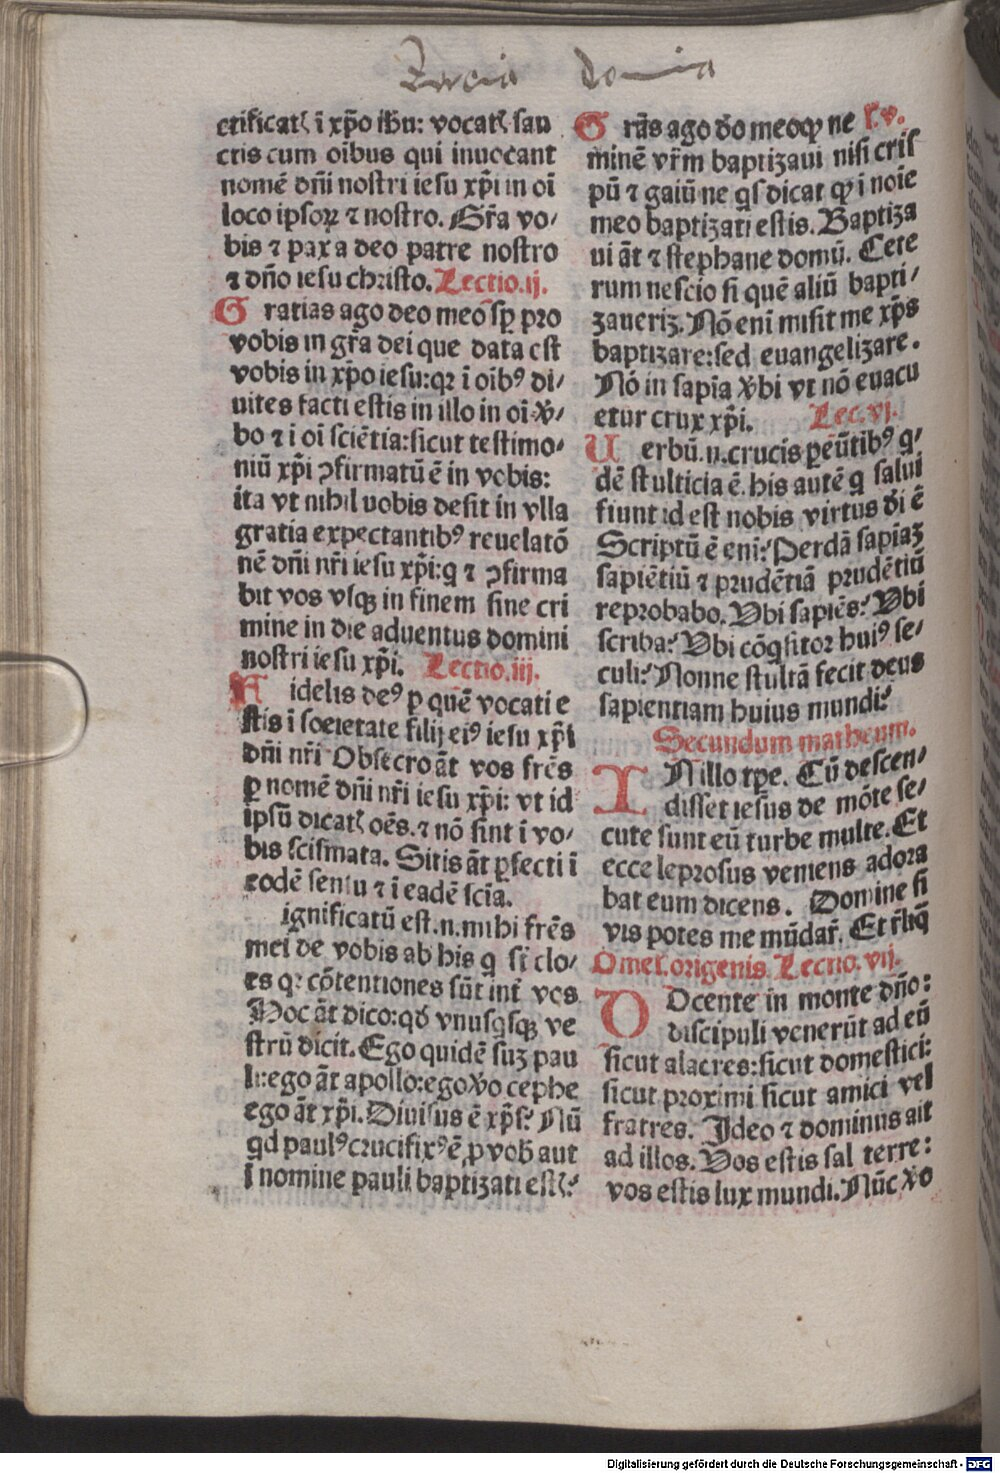 ctificatꝭ ī xp̄o ih̄u: vocatꝭ san
ctis cum oībus qui inuocant
nomē dn̄i nostri iesu xp̄i in oī
loco ipsoꝝ ⁊ nostro. Gr̄a vo⸗
bis ⁊ pax a deo patre nostro
⁊ dn̄o iesu christo. Lectio.ij.
Gratias ago deo meo sꝑ pro
vobis in gr̄a dei que data est
vobis in xp̄o iesu: qꝛ ī oībꝰ di⸗
uites facti estis in illo in oī v̓⸗
bo ⁊ ī oī sciētia: sicut testimo⸗
niū xp̄i ꝯfirmatū ē in vobis:
ita vt nihil uobis desit in vlla
gratia expectantibꝰ reuelatō
nē dn̄i nr̄i iesu xp̄i: q ⁊ ꝯfirma
bit vos vsqꝫ in finem sine cri
mine in die aduentus domini
nostri iesu xp̄i. Lectio.iij.
Fidelis deꝰ ꝑ quē vocati e
stis ī societate filij eiꝰ iesu xp̄i
dn̄i nr̄i Obsecro āt vos fr̄es
ꝑ nomē dn̄i nr̄i iesu xp̄i: vt id
ipsū dicatꝭ oēs. ⁊ nō sint ī vo⸗
bis scismata. Sitis āt ꝑfecti ī
eodē sensu ⁊ ī eadē scīa.
ignificatū est.n.mihi fr̄es
mei de vobis ab his q sī clo⸗
es qꝛ cōtentiones sūt int̄ vos
Hoc āt dico: qd̓ vnusqsqꝫ ve
strū dicit. Ego quidē suꝫ pau
li: ego āt apollo: ego v̓o cephe
ego āt xp̄i. Diuisus ē xp̄s? Nū
qd paulꝰ crucifixꝰ ē ꝓ vob̓ aut
ī nomine pauli baptizati estꝭ?
Gr̄as ago d̓o meo ꝙ ne L.v.
minē vr̄m baptizaui nisi cris
pū ⁊ gaiū ne qs dicat ꝙ ī noīe
meo baptizati estis. Baptiza
ui āt ⁊ stephane domū. Cete
rum nescio si quē aliū bapti⸗
zauerīꝫ. Nō enī misit me xp̄s
baptizare: sed euangelizare.
Nō in sapīa v̓bi vt nō euacu
etur crux xp̄i. Lec.vj.
Uerbū.n.crucis ꝑeūtibꝰ q⸗
dē stulticia ē. his autē q salui
fiunt id est nobis virtus d̓i ē
Scriptū ē eni: Perdā sapīaꝫ
sapiētiū ⁊ prudētiā prudētiū
reprobabo. Vbi sapiēs? Vbi
scriba? Vbi cōqsitor huiꝰ se⸗
culi? Nonne stultā fecit deus
sapientiam huius mundi?
Secundum matheum.
IN illo tꝑe. Cū descen⸗
disset iesus de mōte se⸗
cute sunt eū turbe multe. Et
ecce leprosus veniens adora
bat eum dicens. Domine si
vis potes me mūdar̄. Et r̄liq̄
Omel. origenis. Lectio.vij.
DOcente in monte dn̄o:
discipuli venerūt ad eū
sicut alacres: sicut domestici:
sicut proximi sicut amici vel
fratres. Ideo ⁊ dominus ait
ad illos. Vos estis sal terre:
vos estis lux mundi. Nūc v̓o
Digitalisierung gefördert durch die Deutsche Forschungsgemeinschaft - DFG